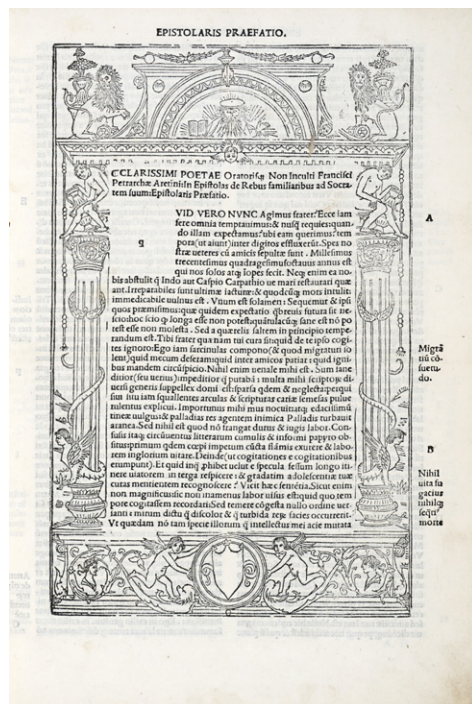 EPISTOLARIS PRAEFATIO.
CLARISSIMI POETAE Oratorisq; Non Inculti Francisci
Petrarchæ Aretini: In Epistolas de Rebus familiaribus ad Socra-
tem suum: Epistolaris Præfatio.
VID VERO NVNC Agimus frater? Ecce iam
fere omnia temptauimus: & nusq̃ requies: quan-
do illam expectamus? ubi eam querimus? tem
pora (ut aiunt) inter digitos effluxerūt. Spes no
stræ ueteres cū amicis sepultæ sunt. Millesimus
trecentesimus quadragesimusoctauus annus est
qui nos solos atq; inopes fecit. Neq; enim ea no-
bis abstulit q̃ Indo aut Caspio Carpathio ue mari restaurari que
ant. Irreparabiles sunt ultimæ iacturæ: & quodcūq; mors intulit:
immedicabile uulnus est. Vnum est solamen: Sequemur & ipsi
quos præmisimus: quæ quidem expectatio q̃ breuis futura sit ne-
scio: hoc scio q̃ longa esse non potest: quātulacūq; sane est nō po
test esse non molesta. Sed a querelis saltem in principio tempe-
randum est. Tibi frater quæ nam tui cura sit: quid de te ipso cogi
tes ignoro: Ego iam sarcinulas compono: & quod migraturi so
lent) quid mecum deferam: quid inter amicos patiar: quid igni
bus mandem circūspicio. Nihil enim uenale mihi est. Sum sane
ditior (seu uerius) impeditior q̃ putabā: multa mihi scriptorum di
uersi generis suppellex domi est: sparsa quidem & neglecta: perqui
siui iam squallentes arculas & scripturas carie semesas pulue
rulentus explicui. Importunus mihi mus nocuit: atq; edacissimū
tineæ uulgus: & palladias res agentem inimica Palladis turbauit
aranea. Sed nihil est quod nō frangat durus & iugis labor. Con-
fusis itaq; circūuentus litterarum cumulis & informi papyro ob-
situs: primum quidem cœpi impetum cūcta flāmis exurere & labo-
rem inglorium uitare. Deinde (ut cogitationes e cogitationibus
erumpunt). Et quid inq̃ phibet uelut e specula fessum longo iti-
nere uiatorem in terga respicere: & gradatim adolescentiæ tuæ
curas metientem recognoscere? Vicit hæc sententia. Sicut enim
non magnificus: sic non inamenus labor uisus est: quid quo tem
pore cogitassem recordari. Sed temere cōgesta nullo ordine uer
santi: mirum dictu q̃ discolor & q̃ turbida rerum facies occurreret.
Vt quædam nō tam specie illorum q̃ intellectus mei acie mutata
A
Migrā
tiū cō
suetu-
do.
B
Nihil
uita fu
gacius
nihilq;